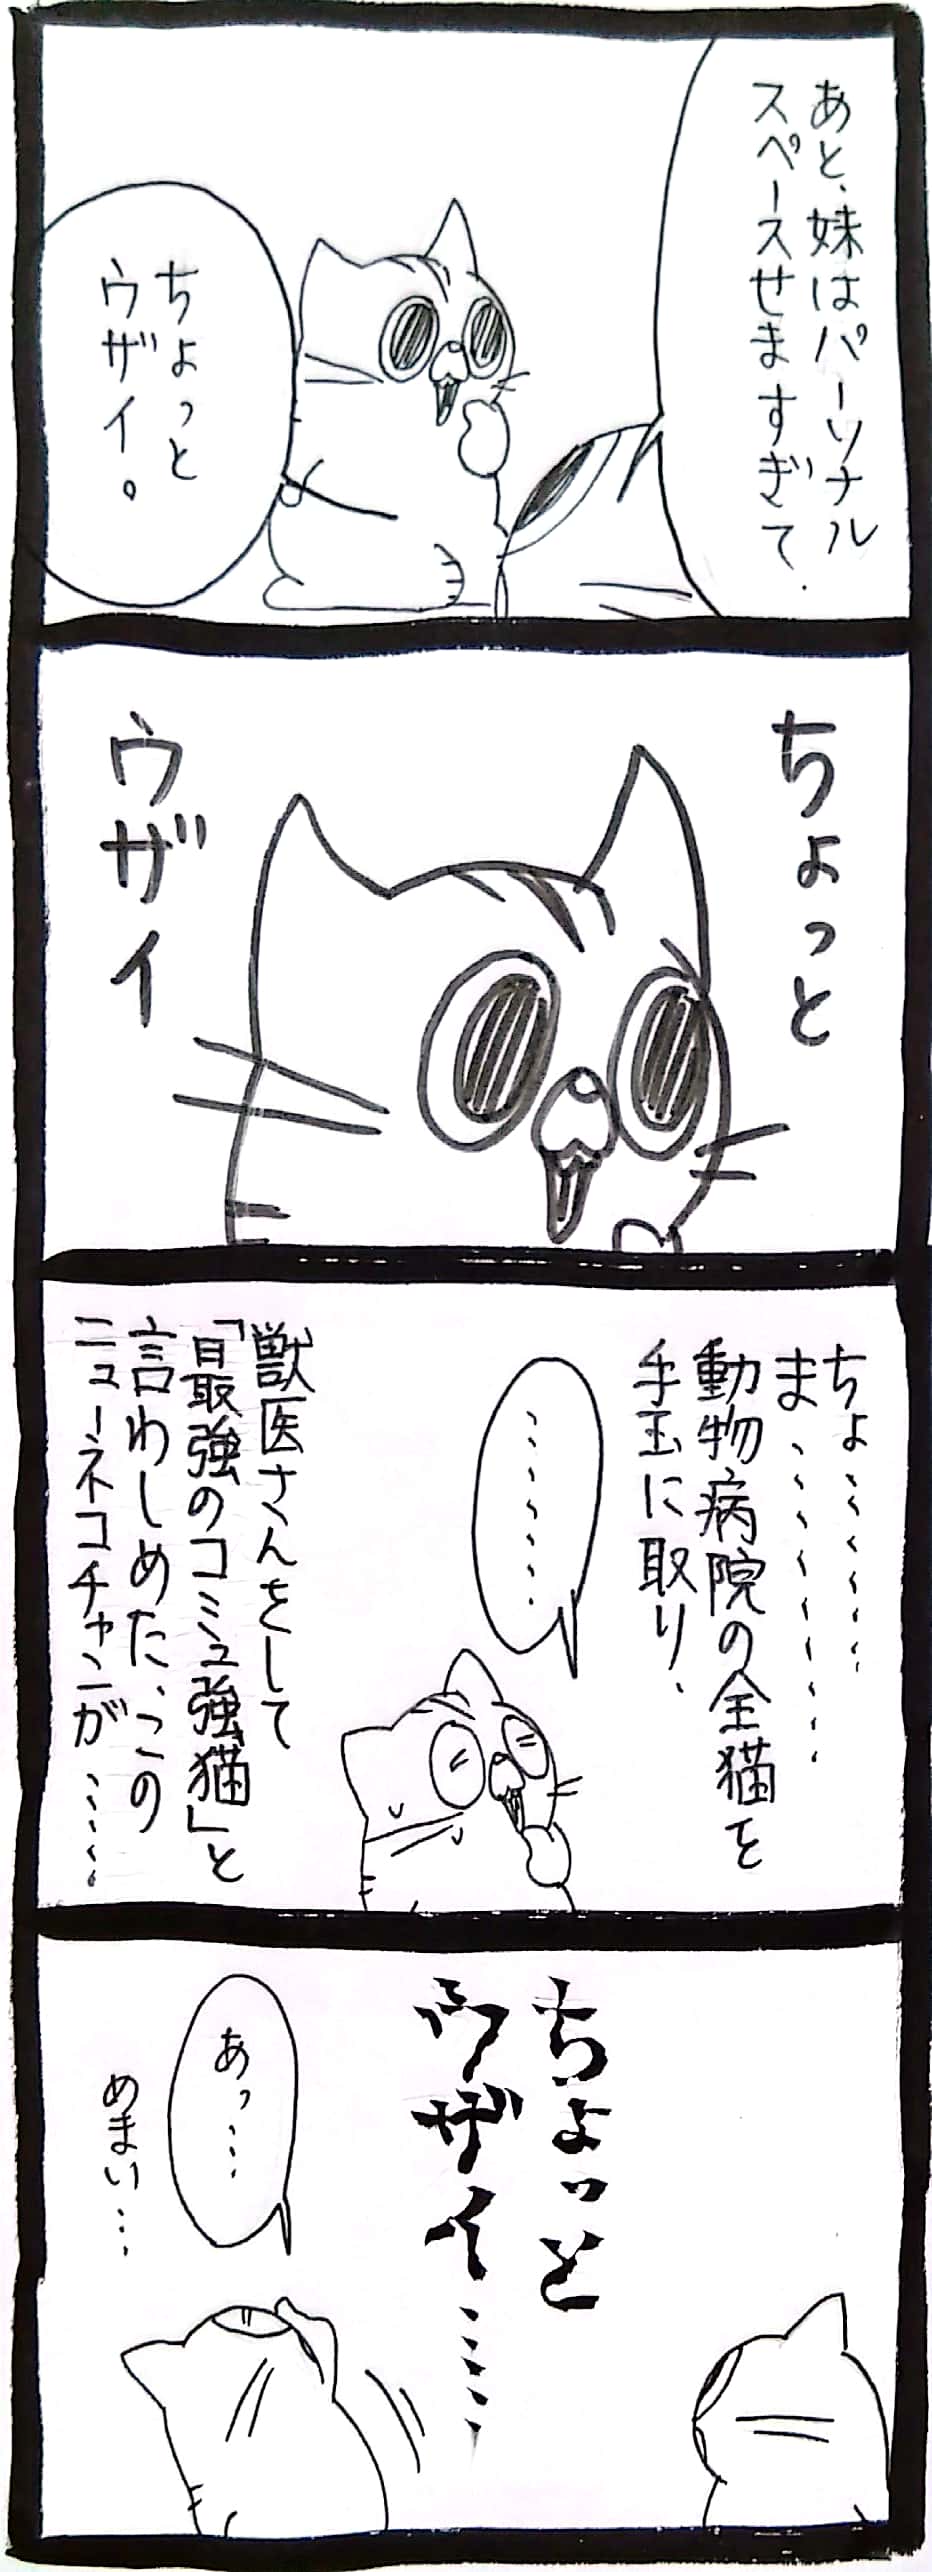 あと、妹はパーソナル
スペースせますぎて.
ちょっと
ウザイ。
ちょっと
ウザイ
ちょ…………
ま…………
動物病院の全猫を
手玉に取り、
…………
獣医さんをして
「最強のコミュ強猫」と
言わしめた、この
ニューネコチャンが……
ちょっと
ウザイ……
あっ…
めまい…